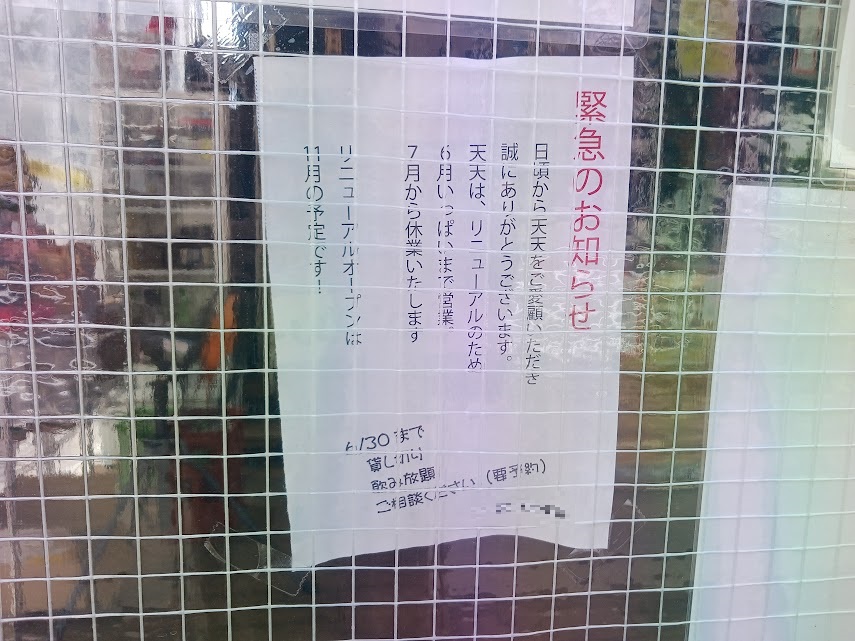 緊急のお知らせ
日頃から天天をご愛顧いただき
誠にありがとうございます。
天天は、リニューアルのため
6月いっぱいまで営業
7月から休業いたします
リニューアルオープンは
11月の予定です!
6/30まで
貸し切り
飲み放題
ご相談ください(要予約)